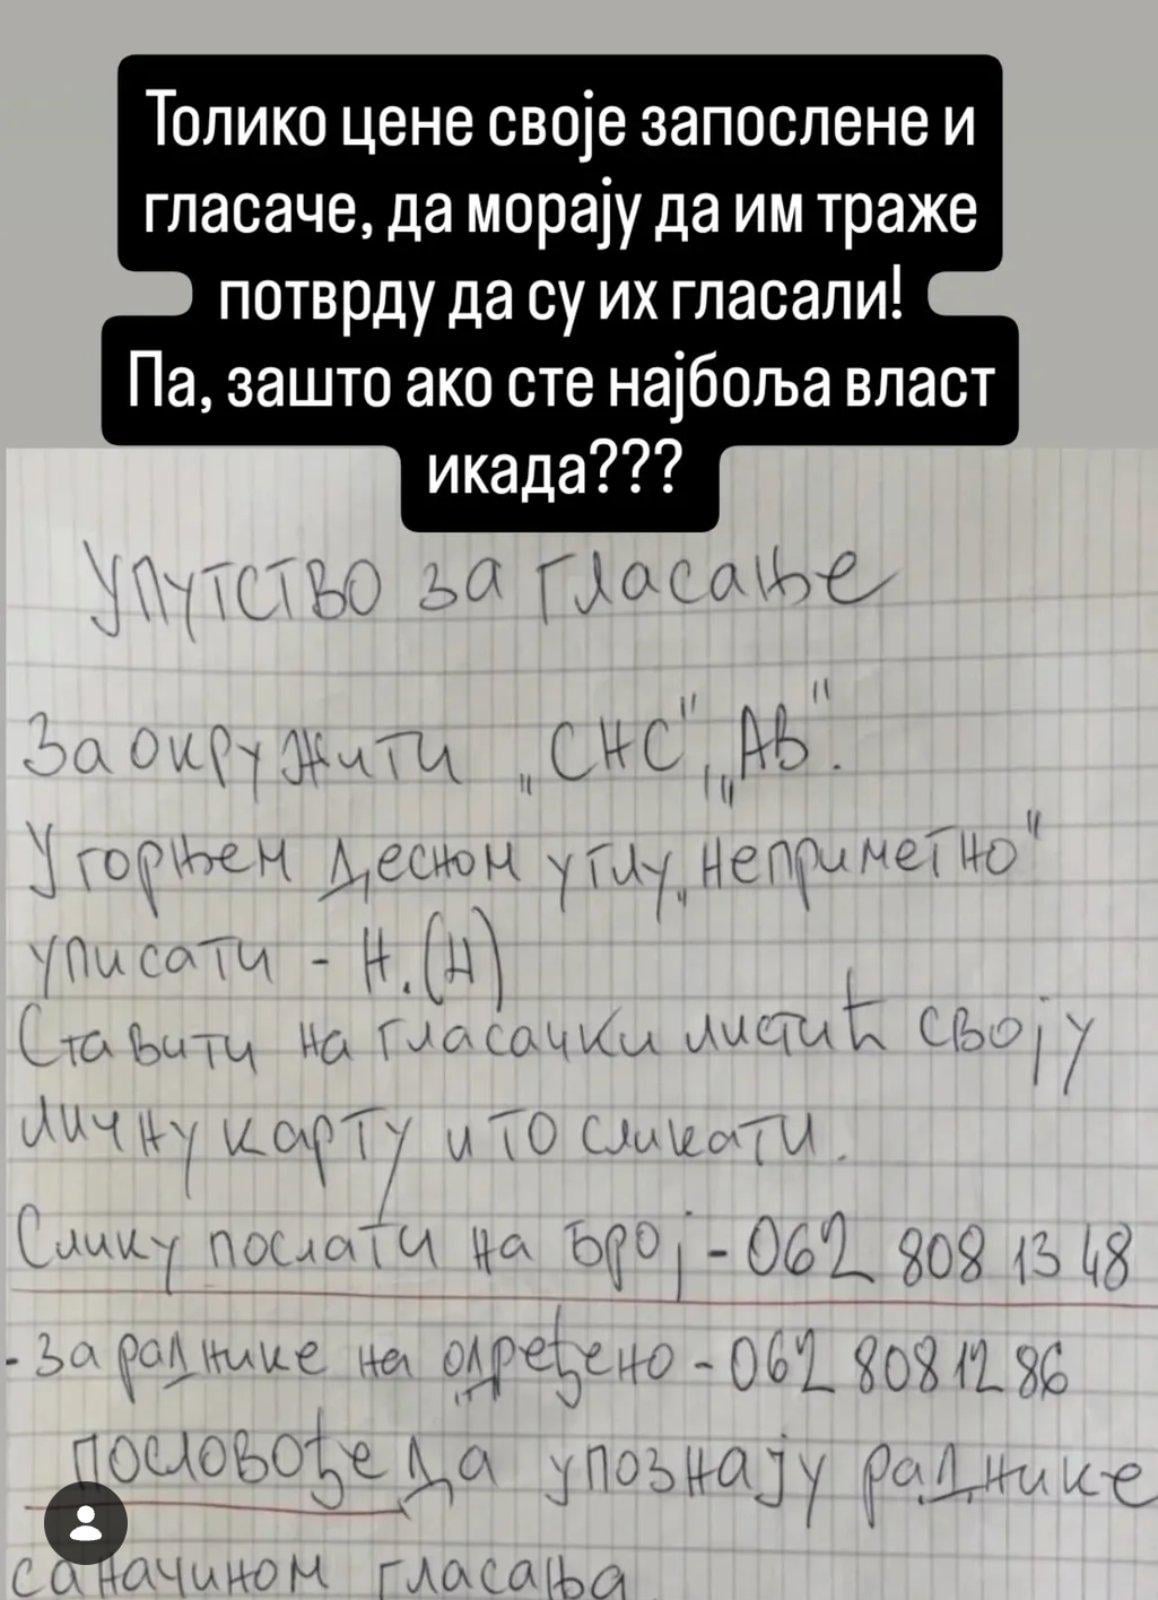 Толико цене своје запослене и
гласаче, да морају да им траже
потврду да су их гласали!
Па, зашто ако сте најбоља власт
икада???
Упутство за гласање
Заокружити „СНС", „АВ".
У горњем десном углу „неприметно"
уписати - Н.(Н)
Ставити на гласачки листић своју
личну карту и то сликати.
Слику послати на број - 062 808 13 48
- за раднике на одређено - 062 808 12 86
пословође да упознају раднике
са начином гласања